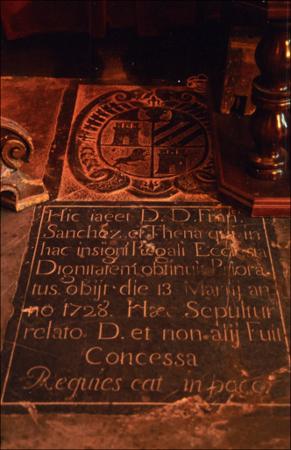 Hic iacet D. D. Fran.
Sanchez. et Thena qui in
hac insigni Regali Ecclesia
Dignitatem obtinuit Priora-
tus. obijt die 13 an
no 1728. Hæc Sepultur
relato D. et non alij Fuit
Concessa
Requies cat in